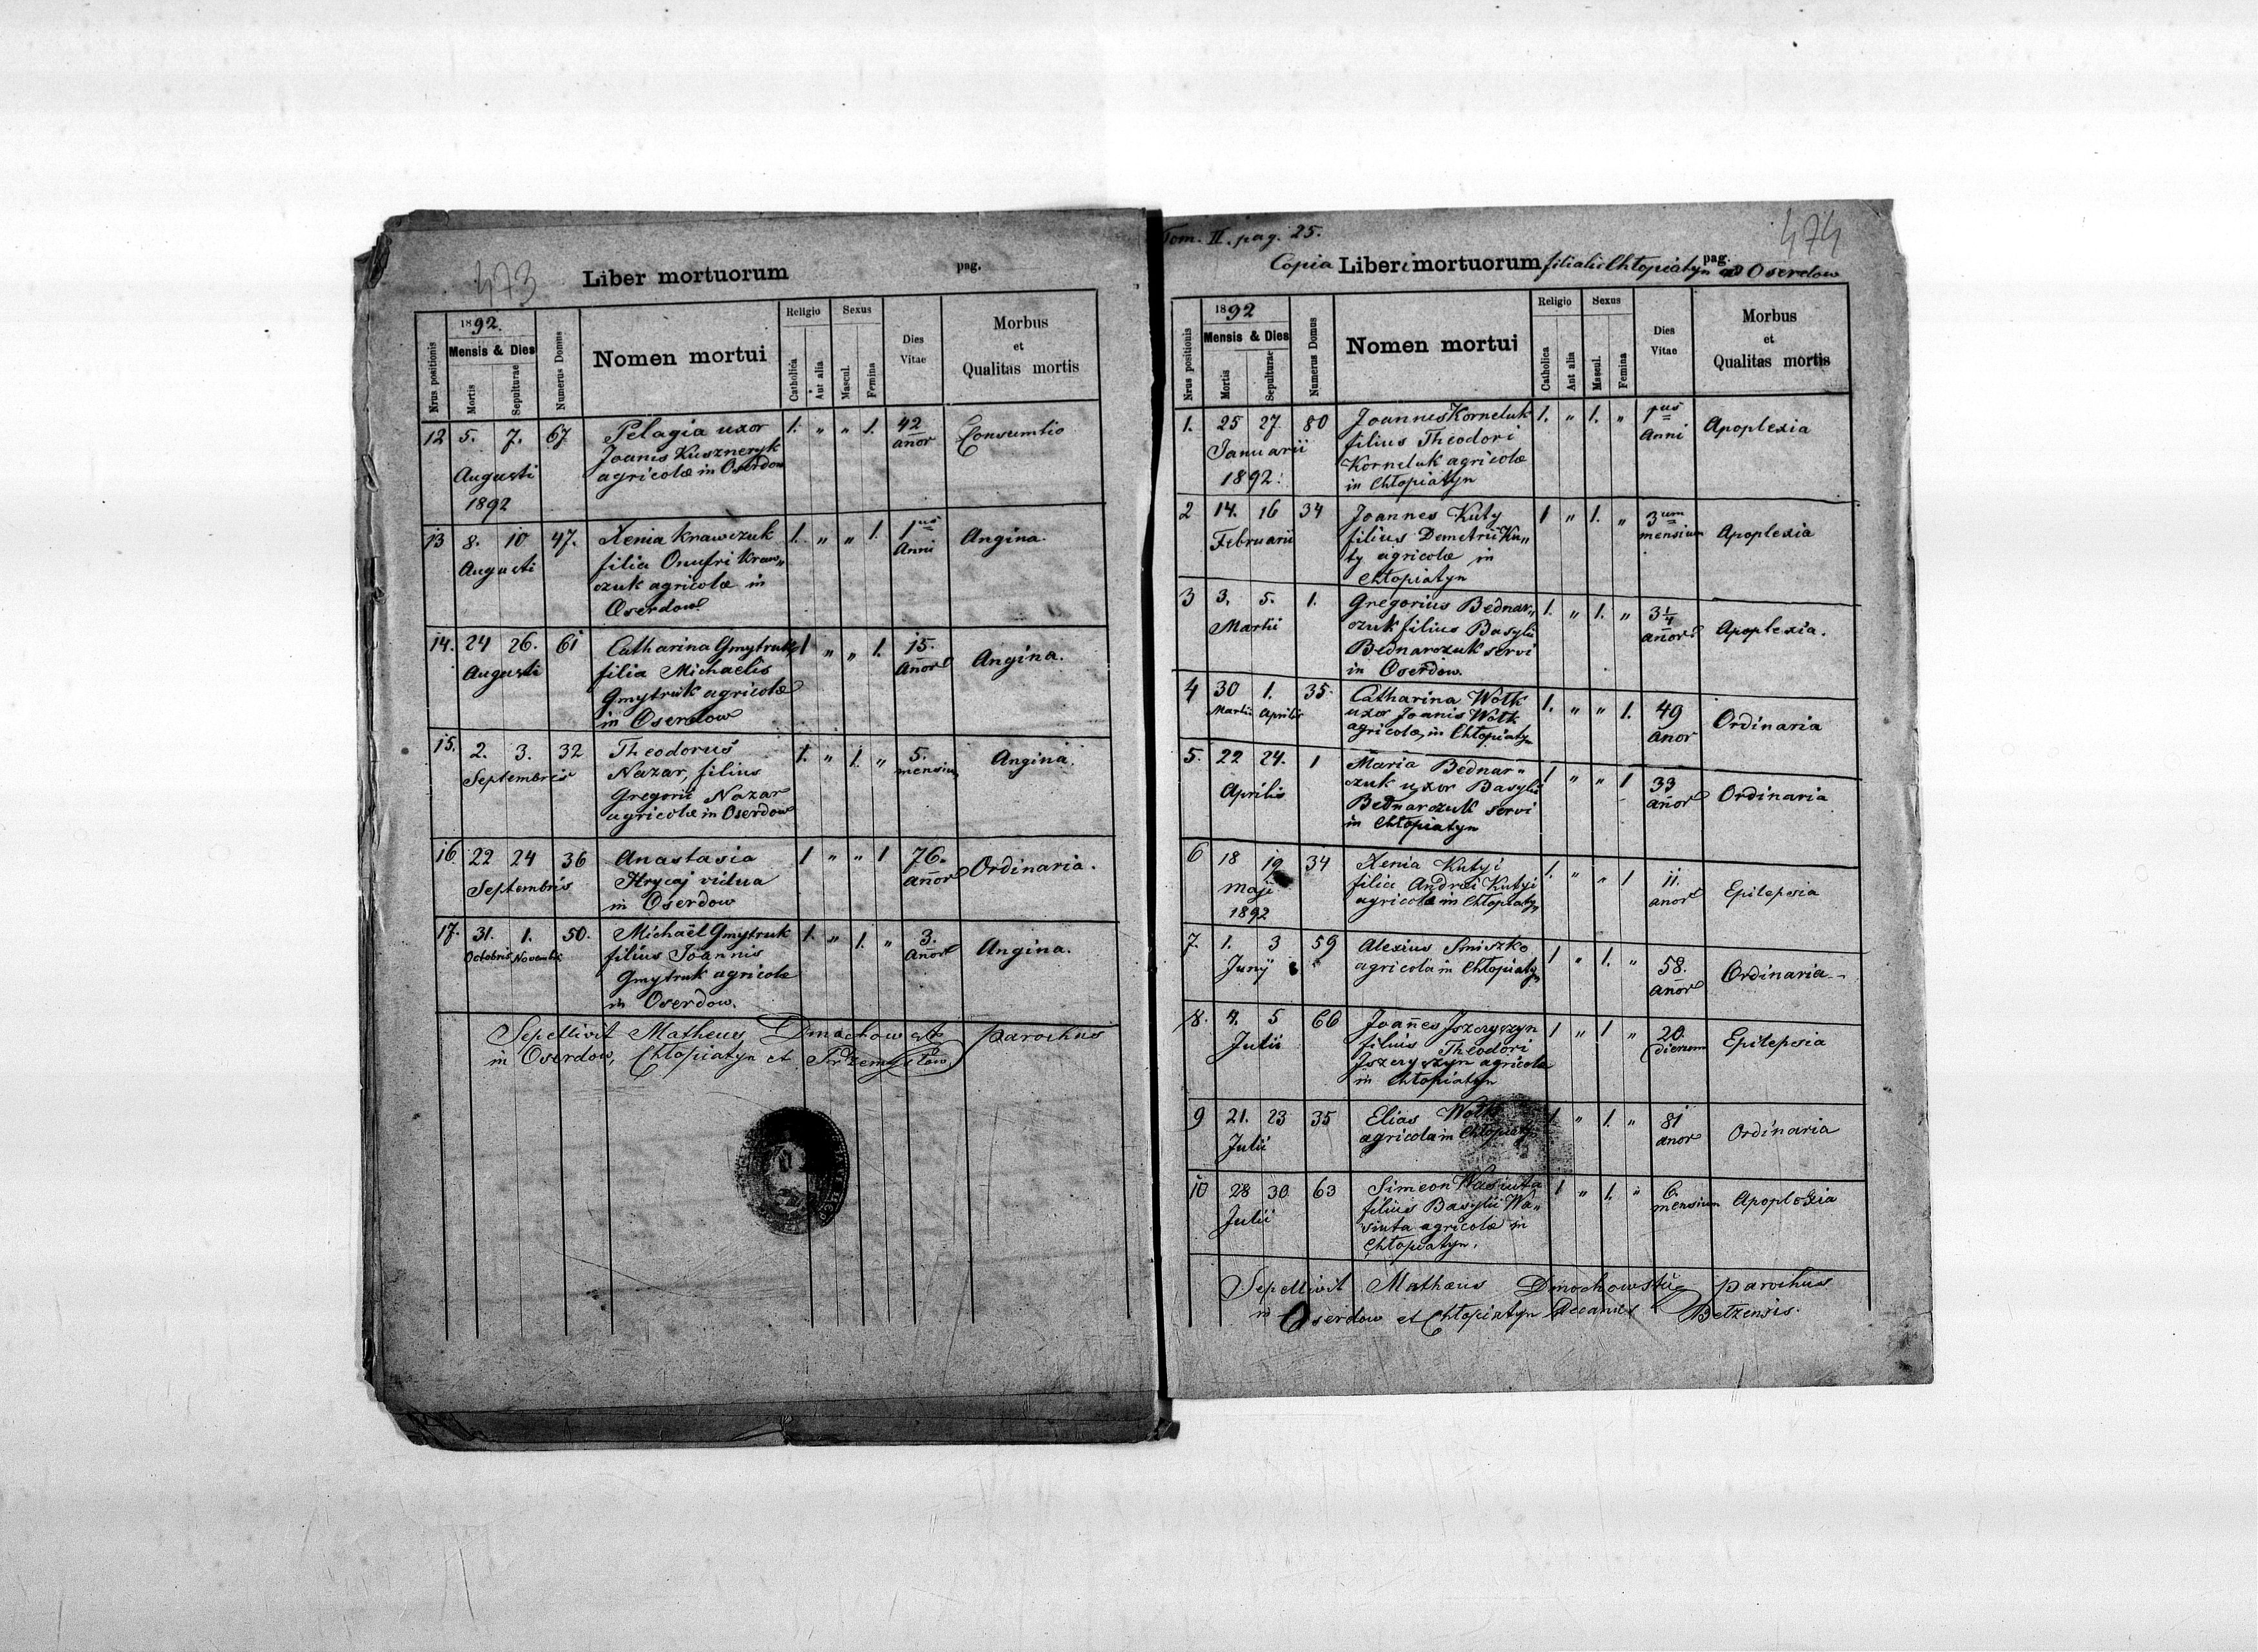 473
Liber mortuorum
pag.
Nrus positionis
1892.
Mensis & Dies
Mortis
Sepulturae
Numerus Domus
Nomen mortui
Religio
Catholica
Aut alia
Sexus
Mascul.
Femina
Dies Vitae
Morbus
et
Qualitas mortis
12 5. 7. 67 Pelagia uxor 1. " " 1. 42 Consumtio
Joanis Kuszneryk añor
Augusti agricolæ in Oserdow
1892
13 8. 10 47. Xenia Krawczuk 1. " " 1. 1us Angina.
Augusti filia Onufri Kraw„ Anni
czuk agricolæ in
Oserdow
14. 24 26. 61 Catharina Gmytruk 1 " " 1. 15. Angina.
Augusti filia Michaelis añor
Gmytruk agricolæ
in Oserdow
15. 2. 3. 32 Theodorus 1. " 1. " 5. Angina.
Septembris Nazar, filius mensium
Gregorii Nazar
agricolæ in Oserdow
16. 22 24 36 Anastasia 1 " " 1 76. Ordinaria.
Septembris Hrycaj vidua añor
in Oserdow
17. 31. 1. 50. Michaël Gmytruk 1. " 1. " 3. Angina.
Octobris Novemb. filius Joannis añor
Gmytruk agricolæ
in Oserdow.
Sepellivit Matheus parochus
in Oserdow, Chłopiatyn et Przemysłow.
Tom. II. pag. 25.
474
Copia Liberi mortuorum filialis Chłopiatyn ad Oserdow
pag.
Nrus positionis
1892
Mensis & Dies
Mortis
Sepulturae
Numerus Domus
Nomen mortui
Religio
Catholica
Aut alia
Sexus
Mascul.
Femina
Dies Vitae
Morbus
et
Qualitas mortis
1. 25 27. 80 Joannes Korneluk 1. " 1. " 1us Apoplexia
Januarii filius Theodori Anni
Korneluk agricolæ
1892. in Chłopiatyn
2 14. 16 34 Joannes Kuty 1 " 1. " 3um Apoplexia
Februarii filius Demetrii Ku„ mensium
ty agricolæ in
Chłopiatyn
3 3. 5. 1. Gregorius Bednar„ 1. " 1. " 3 1/4 Apoplexia.
Martii czuk filius Basylii añor
Bednarczuk servi
in Oserdow.
4 30 1. 35. Catharina Wołk 1. " " 1. 49 Ordinaria
Martii Aprilis uxor Joanis Wołk anor
agricolæ, in Chłopiatyn
5. 22 24. 1 Maria Bednar„ 1 " " 1 33 Ordinaria
Aprilis czuk uxor Basylii añor
Bednarczuk servi
in Chłopiatyn
6 18 19 34 Xenia Kutyi 1. " " 1 11. Epilepsia
Maji filia Andrei Kutyi anor
1892 agricolæ in Chłopiatyn
7. 1. 3 59 Alexius Smiszko 1 " 1. " 58. Ordinaria
Junij agricola in Chłopiatyn añor
8. 4. 5 66 Joañes Iszczyszyn 1 " 1 " 20. Epilepsia
Julii filius Theodori dierum
Iszczyszyn agricolæ
in Chłopiatyn
9 21. 23 35 Elias Wołk 1 " 1. " 81 Ordinaria
Julii agricola in Chłopiatyn anor
10 28 30 63 Simeon Wasiuta 1 " 1. " 6. Apoplexia
Julii filius Basylii Wa„ mensium
siuta agricolæ in
Chłopiatyn.
Sepellivit Mathæus Dmochowski parochus
in Oserdow et Chłopiatyn Decanus Bełzensis.